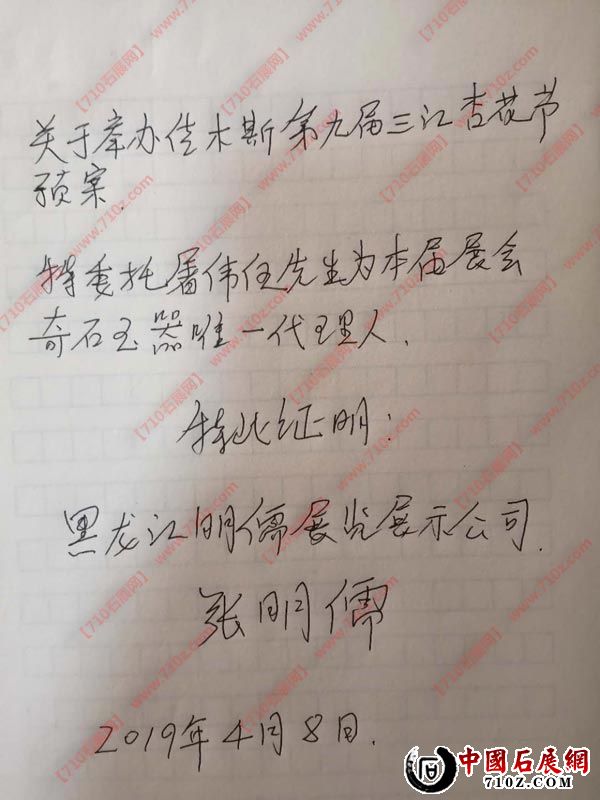 关于举办佳木斯第九届三江杏花节
预案.
特委托屠伟任先生为本届展会
奇石玉器唯一代理人.
特此证明:
黑龙江明儒展览展示公司.
张明儒
2019年4月8日.
【710石展网】www.710z.com
中國石展網
710Z.COM